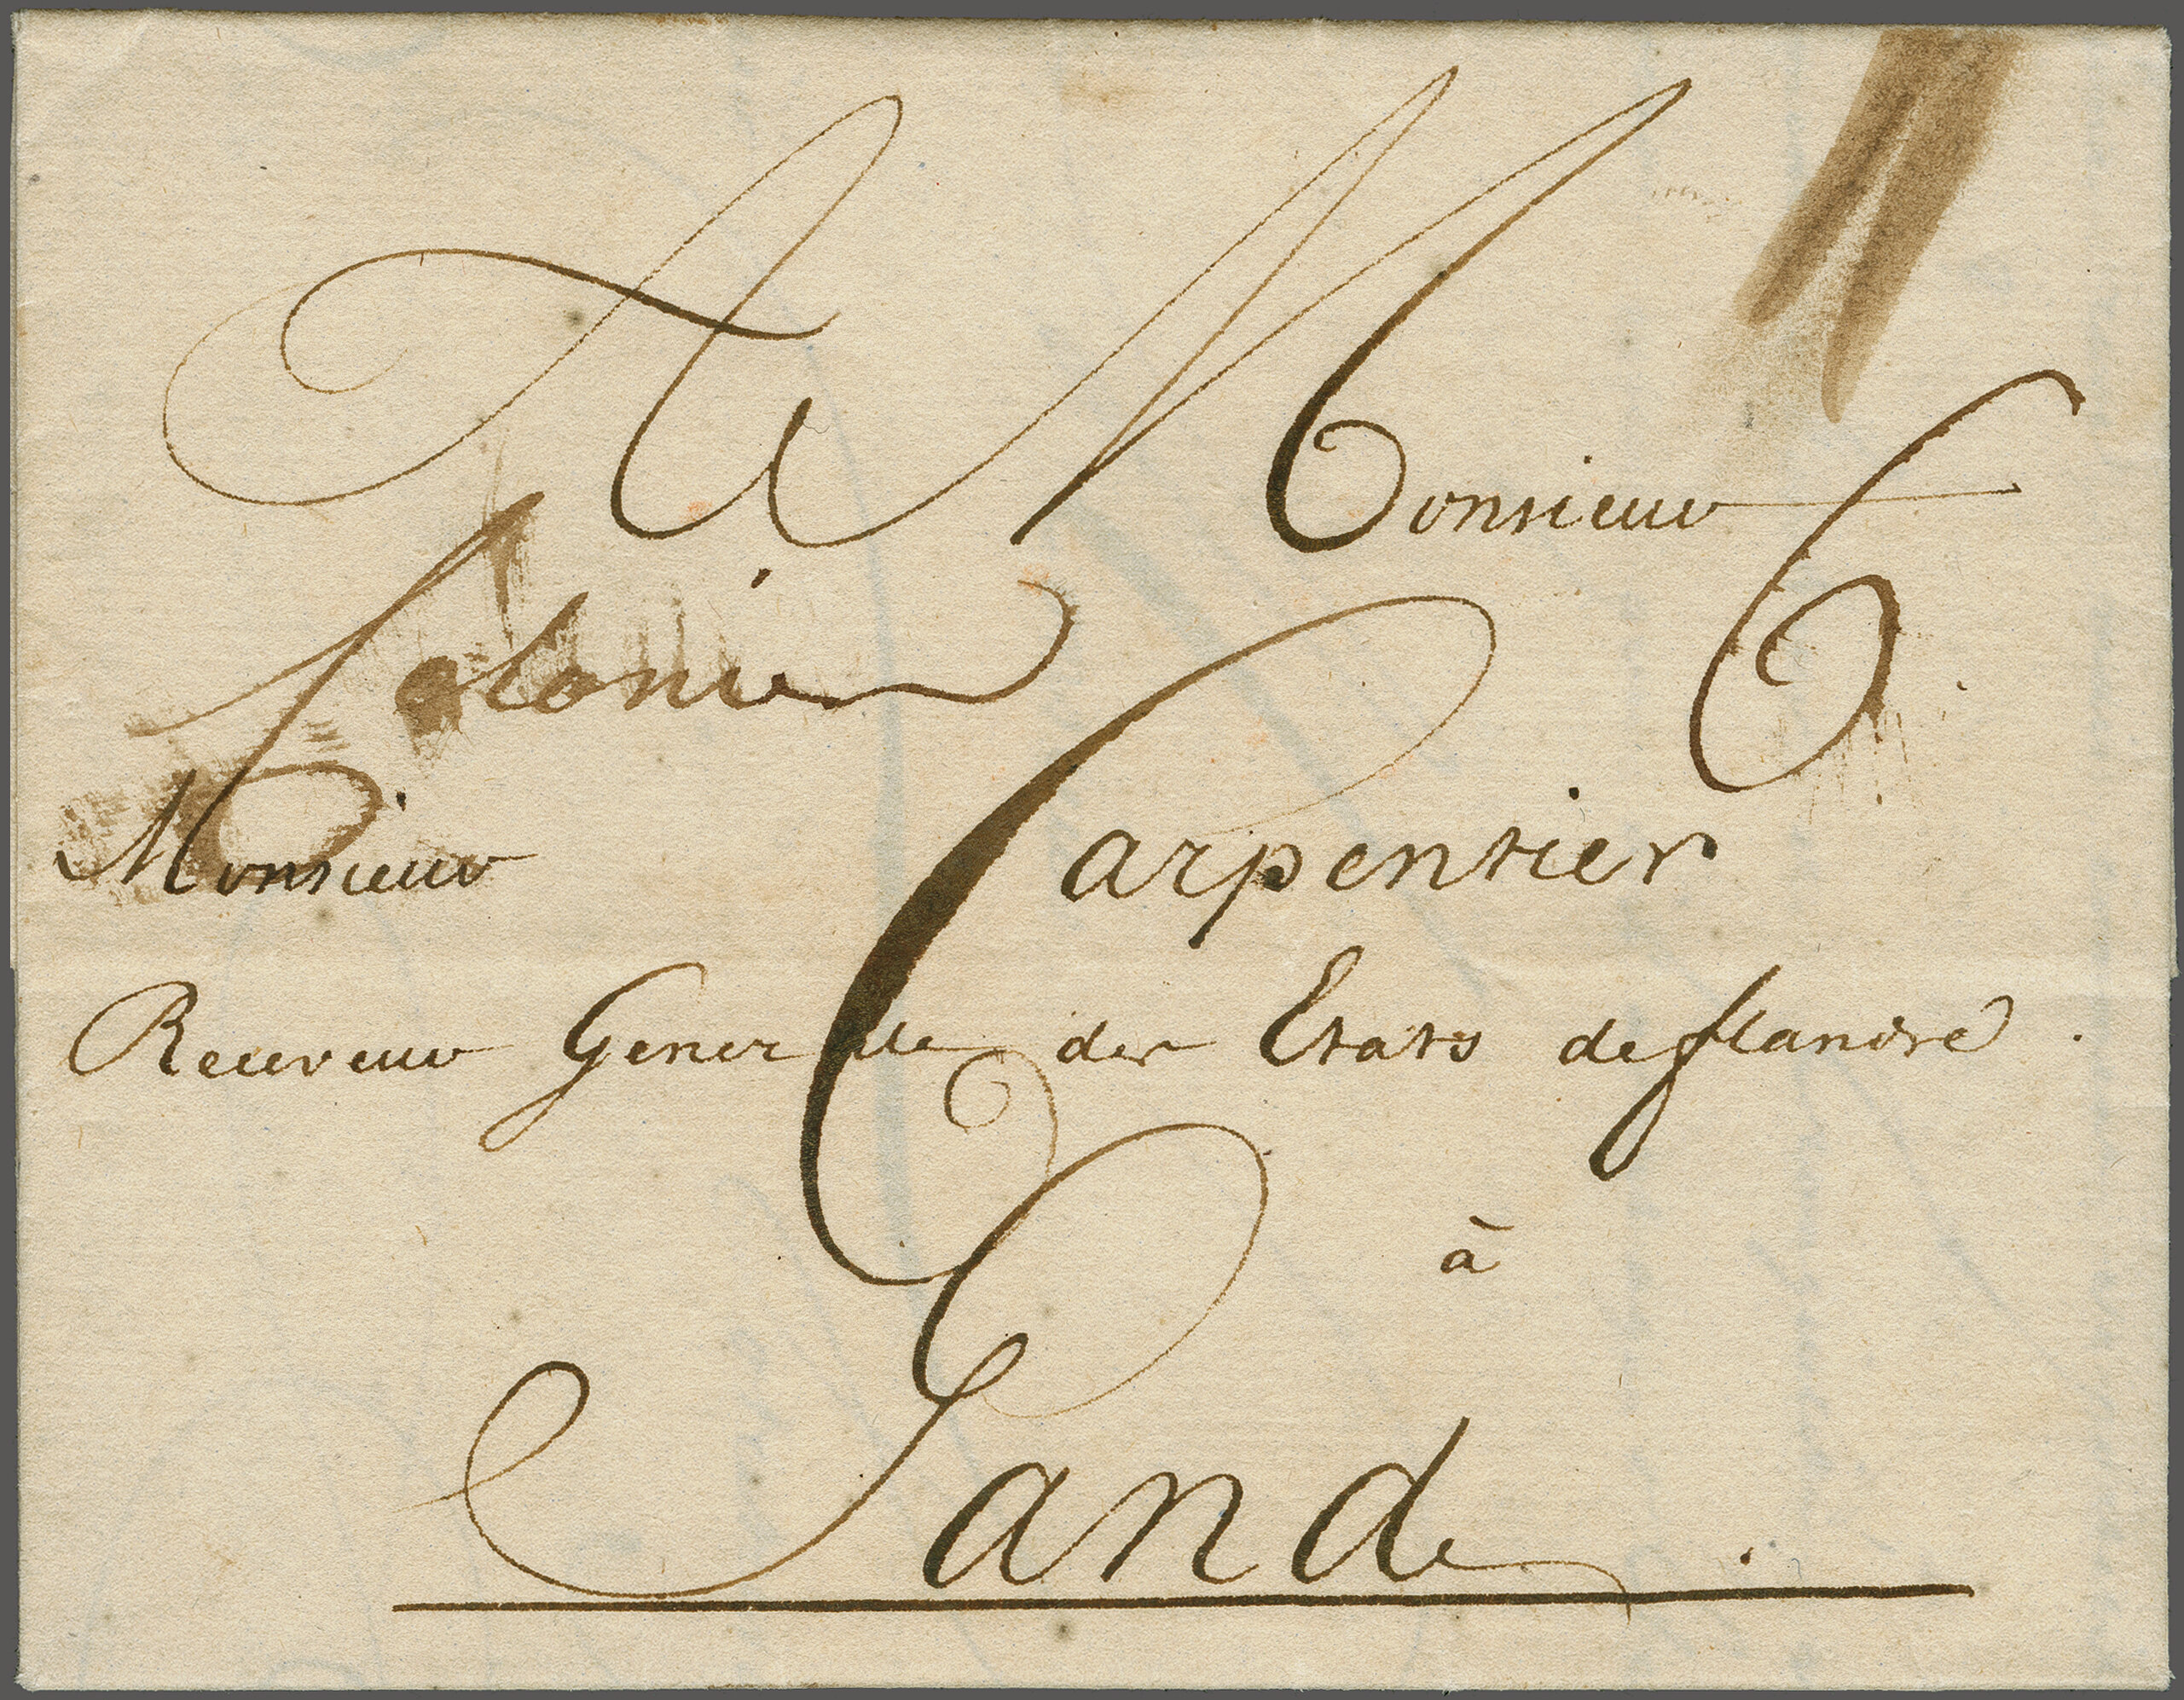 A Monsieur
6
Monsieur Carpentier
Receveur Generale des Etats de flandre.
à
Gand.